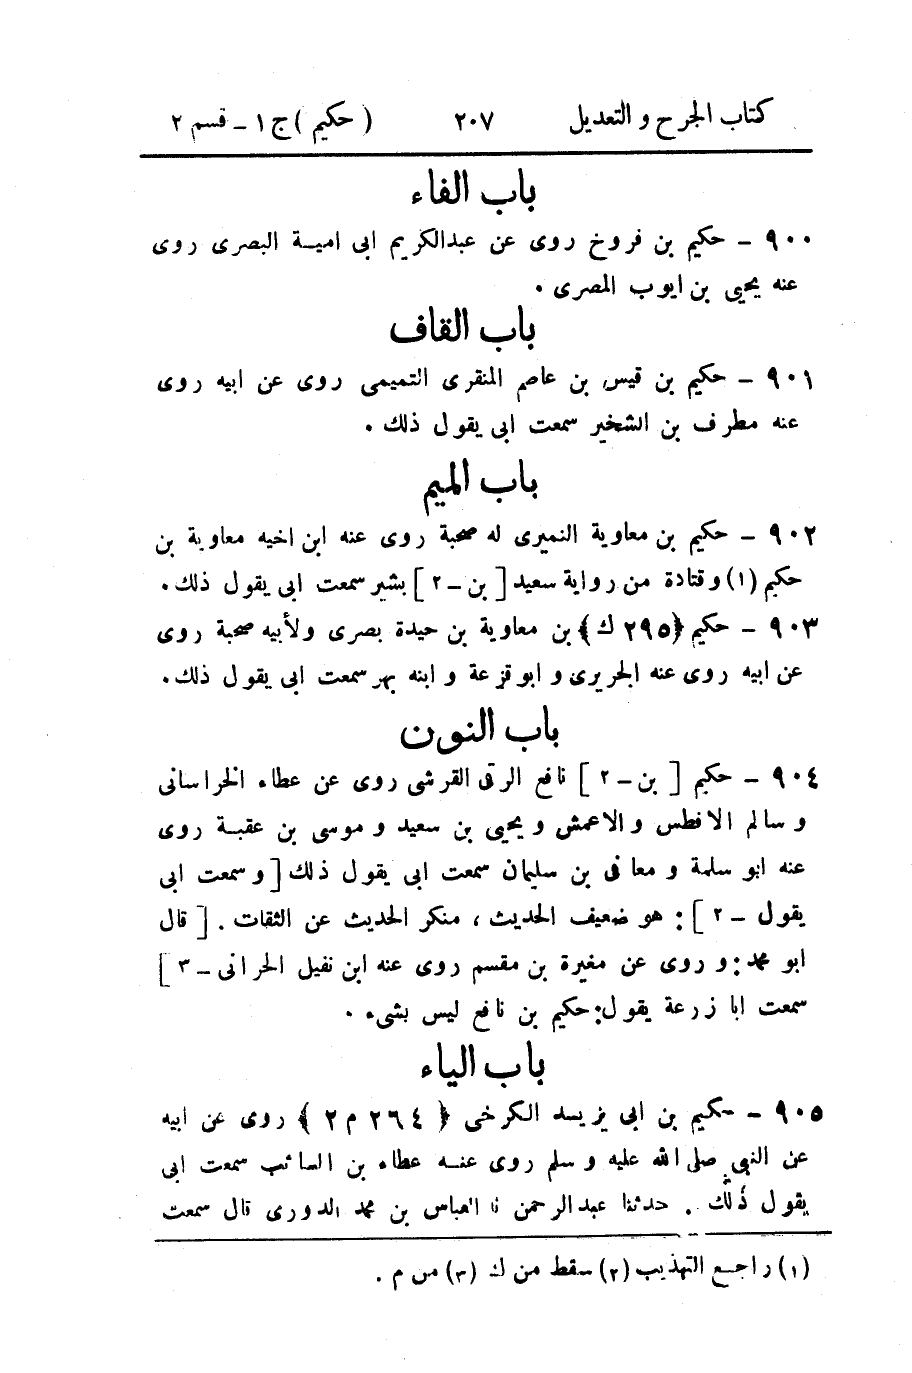 كتاب الجرح و التعديل ٢٠٧ ( حكيم ) ج ١ ـ قسم ٢
باب الفاء
٩٠٠ ـ حكيم بن فروخ روى عن عبدالكريم ابى امية البصرى روى
عنه يحيى بن ايوب المصرى .
باب القاف
٩٠١ ـ حكيم بن قيس بن عاصم المنقرى التميمى روى عن ابيه روى
عنه مطرف بن الشخير سمعت ابى يقول ذلك .
باب الميم
٩٠٢ ـ حكيم بن معاوية النميرى له صحبة روى عنه ابن اخيه معاوية بن
حكيم (١) و قتادة من رواية سعيد [ بن ـ ٢ ] بشير سمعت ابى يقول ذلك .
٩٠٣ ـ حكيم ﴿٢٩٥ ك﴾ بن معاوية بن حيدة بصرى ولأبيه صحبة روى
عن ابيه روى عنه الجريرى و ابو قزعة و ابنه بهز سمعت ابى يقول ذلك .
باب النون
٩٠٤ ـ حكيم [ بن ـ ٢ ] نافع الرقى القرشى روى عن عطاء الخراسانى
و سالم الافطس و الاعمش و يحيى بن سعيد و موسى بن عقبة روى
عنه ابو سلمة و معافى بن سليمان سمعت ابى يقول ذلك [ و سمعت ابى
يقول ـ ٢ ] : هو ضعيف الحديث ، منكر الحديث عن الثقات . [ قال
ابو محمد : و روى عن مغيرة بن مقسم روى عنه ابن نفيل الحرانى ـ ٣ ]
سمعت ابا زرعة يقول : حكيم بن نافع ليس بشىء .
باب الياء
٩٠٥ ـ حكيم بن ابى يزيد الكرخى ﴿ ٢٦٤ م ٢ ﴾ روى عن ابيه
عن النبى صلى الله عليه و سلم روى عنه عطاء بن السائب سمعت ابى
يقول ذلك . حدثنا عبدالرحمن نا العباس بن محمد الدورى قال سمعت
(١) راجع التهذيب (٢) سقط من ك (٣) من م .